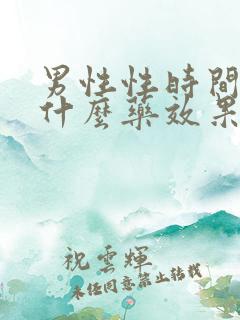 男性性時間
什麼藥效果
祝雲輝
未經同意禁止轉載